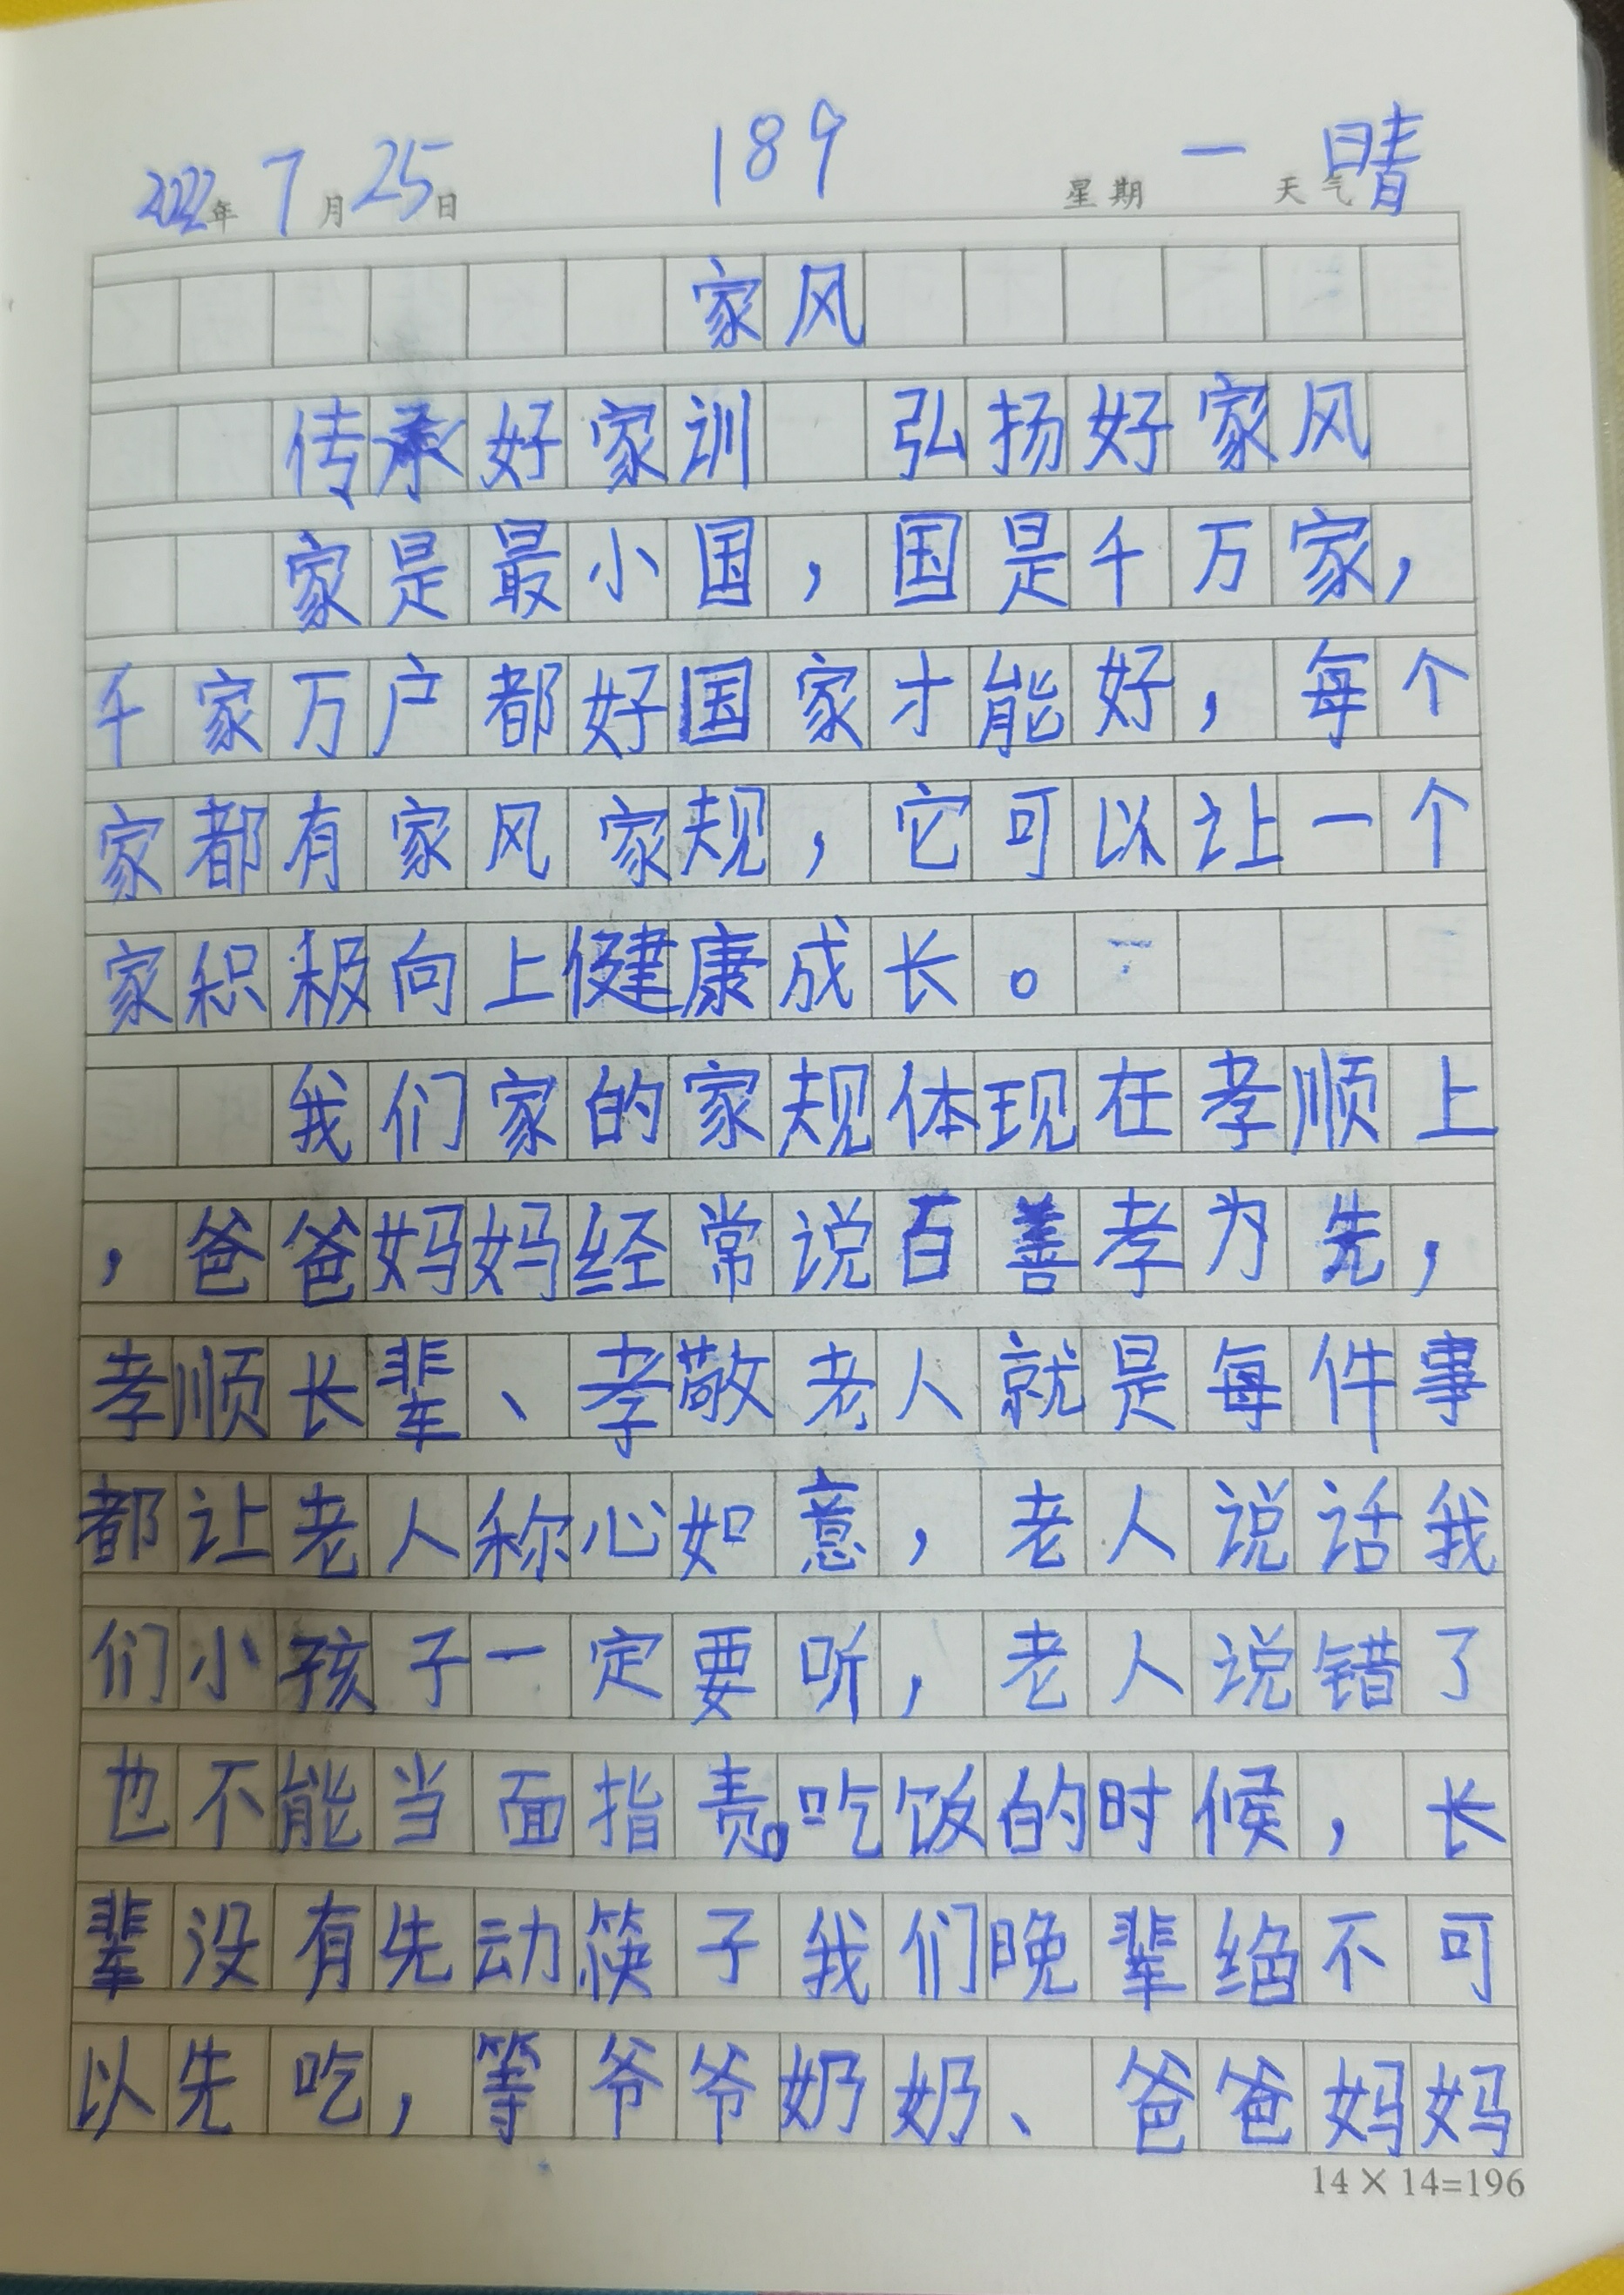 2022年 7月25日 189 星期一 天气晴
家风
传承好家训 弘扬好家风
家是最小国，国是千万家，
千家万户都好国家才能好，每个
家都有家风家规，它可以让一个
家积极向上健康成长。
我们家的家规体现在孝顺上
，爸爸妈妈经常说百善孝为先，
孝顺长辈、孝敬老人就是每件事
都让老人称心如意，老人说话我
们小孩子一定要听，老人说错了
也不能当面指责。吃饭的时候，长
辈没有先动筷子我们晚辈绝不可
以先吃，等爷爷奶奶、爸爸妈妈
14×14=196